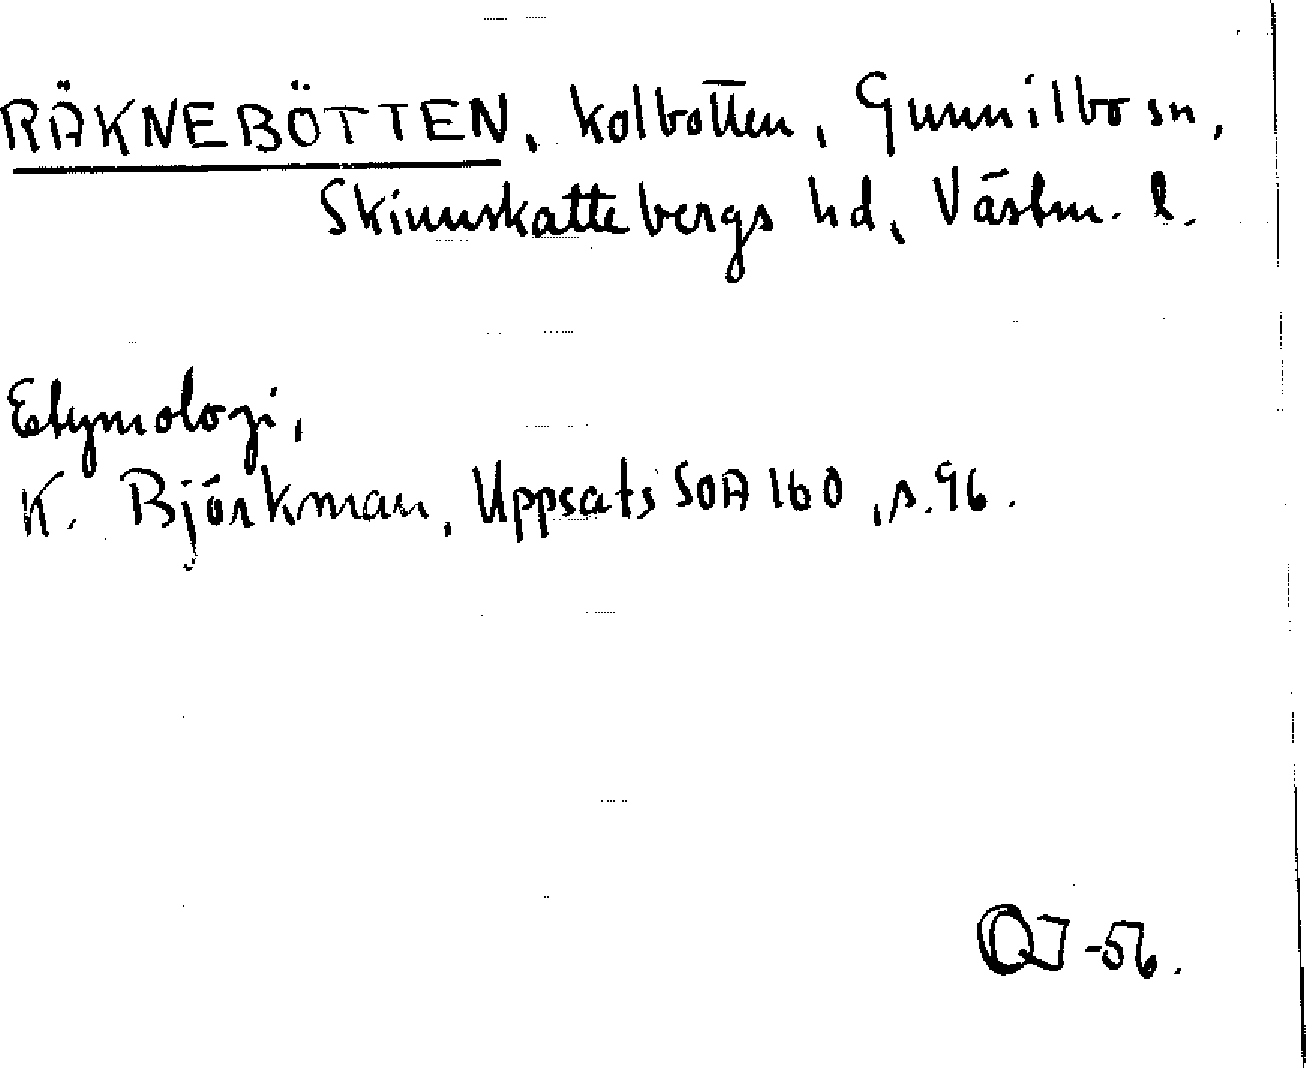 RÄKNEBÖTTEN, kolbotten, Gunnilbo sn,
Skinnskattebergs hd, Västm. l.
Etymologi,
K. Björkman, Uppsats SOA 160, s. 96.
OJ -56.